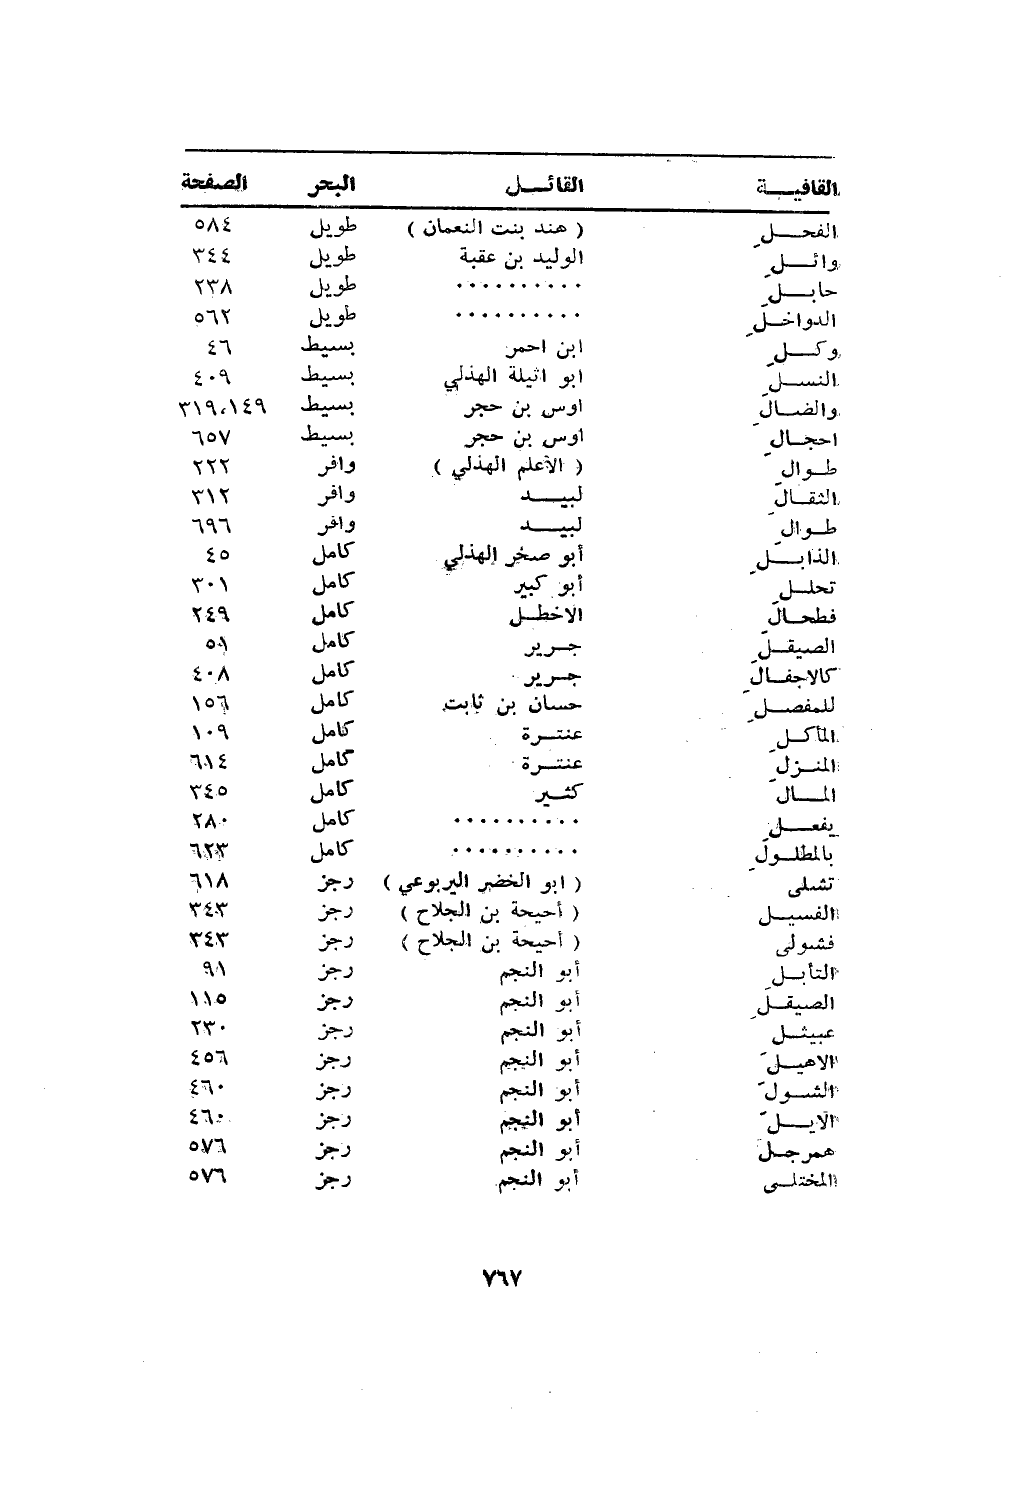 القافيـــة القائـــل البحر الصفحة
الفحـــلِ ( هند بنت النعمان ) طويل ٥٨٤
وائـــلِ الوليد بن عقبة طويل ٣٤٤
حابـــلِ .......... طويل ٢٣٨
الدواخـلِ .......... طويل ٥٦٢
وكـــلِ ابن احمر بسيط ٤٦
النســـلِ ابو اثيلة الهذلي بسيط ٤٠٩
والضـــالِ اوس بن حجر بسيط ٣١٩،١٤٩
احجـــالِ اوس بن حجر بسيط ٦٥٧
طــوالِ ( الأعلم الهذلي ) وافر ٢٢٢
الثقــالِ لبيـــد وافر ٣١٢
طــوالِ لبيـــد وافر ٦٩٦
الذابـــلِ أبو صخر الهذلي كامل ٤٥
تحلــلِ أبو كبير كامل ٣٠١
فطحــالِ الاخطــل كامل ٢٤٩
الصيقــلِ جــرير كامل ٥١
كالاجفــالِ جــرير كامل ٤٠٨
للمفصــلِ حسان بن ثابت كامل ١٥٦
المأكــلِ عنتــرة كامل ١٠٩
المنــزلِ عنتــرة كامل ٦١٤
المـــالِ كثــير كامل ٣٤٥
يفعـــلِ .......... كامل ٢٨٠
بالمطلــولِ .......... كامل ٦٢٣
تشلى ( ابو الخضر اليربوعي ) رجز ٦١٨
الفسيــل ( أحيحة بن الجلاح ) رجز ٣٤٣
فشولى ( أحيحة بن الجلاح ) رجز ٣٤٣
التأبــلِ أبو النجم رجز ٩١
الصيقــلِ أبو النجم رجز ١١٥
عبيثــل أبو النجم رجز ٢٣٠
الاهيــلَ أبو النجم رجز ٤٥٦
الشــولَ أبو النجم رجز ٤٦٠
الايـــلَ أبو النجم رجز ٤٦٠
همرجــل أبو النجم رجز ٥٧٦
المختلــى أبو النجم رجز ٥٧٦
٧٦٧